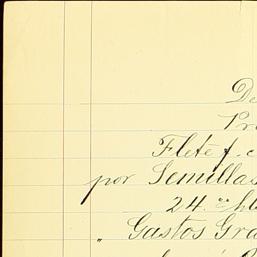 De
Pr
Flete f. c
por Semillas
24
„ Gastos Gra